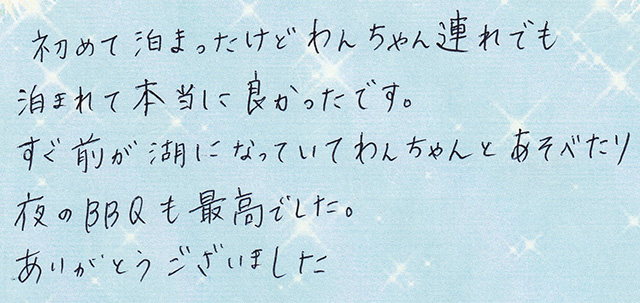 初めて泊まったけどわんちゃん連れでも
泊まれて本当に良かったです。
すぐ前が湖になっていてわんちゃんとあそべたり
夜のBBQも最高でした。
ありがとうございました